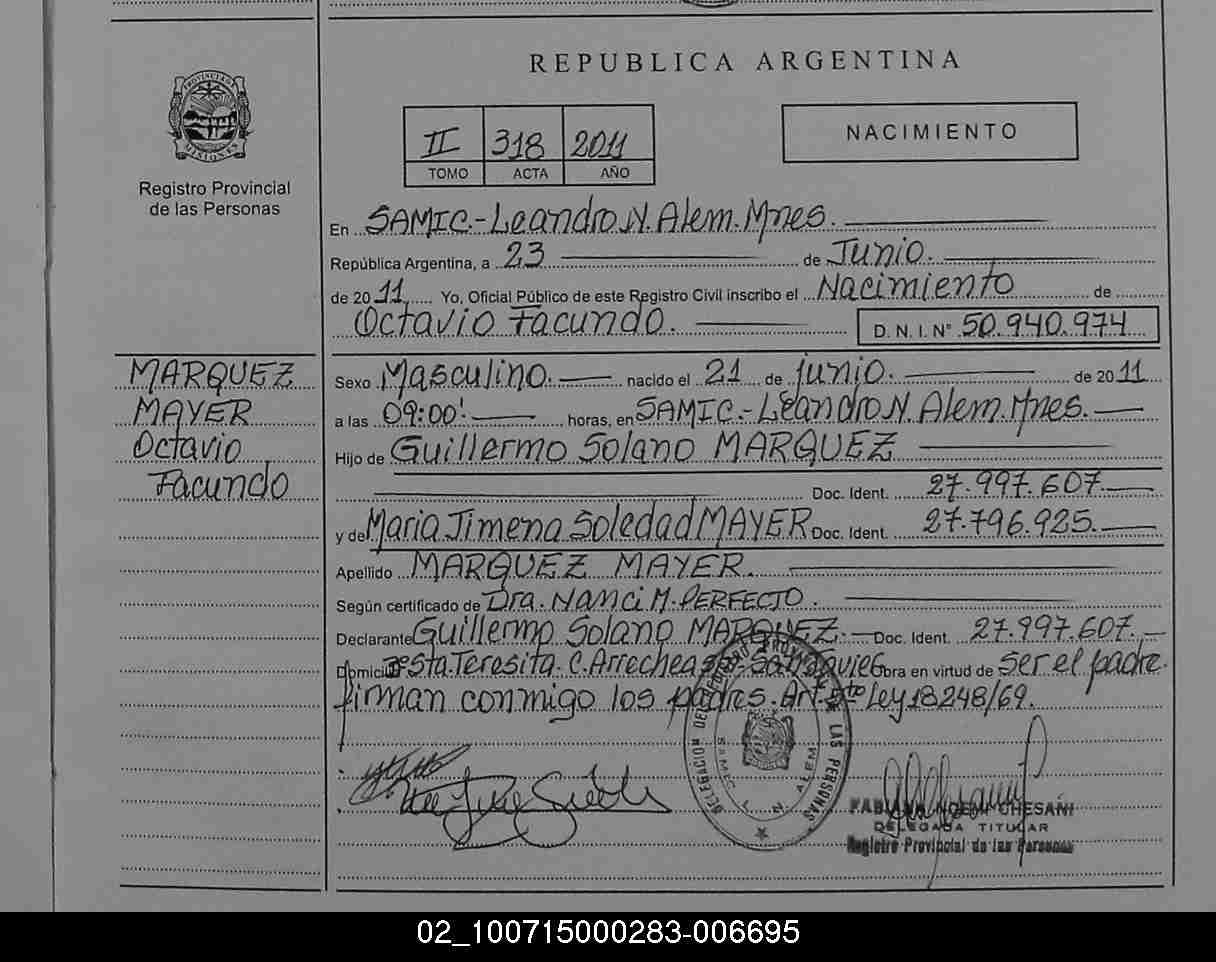 REPUBLICA ARGENTINA
PROVINCIA DE
MISIONES
Registro Provincial
de las Personas
II 318 2011
TOMO ACTA AÑO
NACIMIENTO
En SAMIC.-Leandro N. Alem. Mnes.
República Argentina, a 23 de Junio.
de 2011 Yo, Oficial Público de este Registro Civil inscribo el Nacimiento de
Octavio Facundo. D. N. I. N° 50.940.974
MARQUEZ
MAYER
Octavio
Facundo
Sexo Masculino. nacido el 21 de junio. de 2011
a las 09:00'. horas, en SAMIC.-Leandro N. Alem. Mnes.
Hijo de Guillermo Solano MARQUEZ
Doc. Ident. 27.997.607.
y de Maria Jimena Soledad MAYER Doc. Ident. 27.796.925.
Apellido MARQUEZ MAYER.
Según certificado de Dra. Nanci M. PERFECTO.
Declarante Guillermo Solano MARQUEZ. Doc. Ident. 27.997.607.
Domicilio Sta. Teresita. C. Arrechea Obra en virtud de Ser el padre.
firman conmigo los padres. Art. 5to Ley 18248/69.
DELEGACION DEL REGISTRO PROVINCIAL DE LAS PERSONAS
SAMIC L. N. ALEM
FABIANA NOEMI CHESANI
DELEGADA TITULAR
Registro Provincial de las Personas
02_100715000283-006695